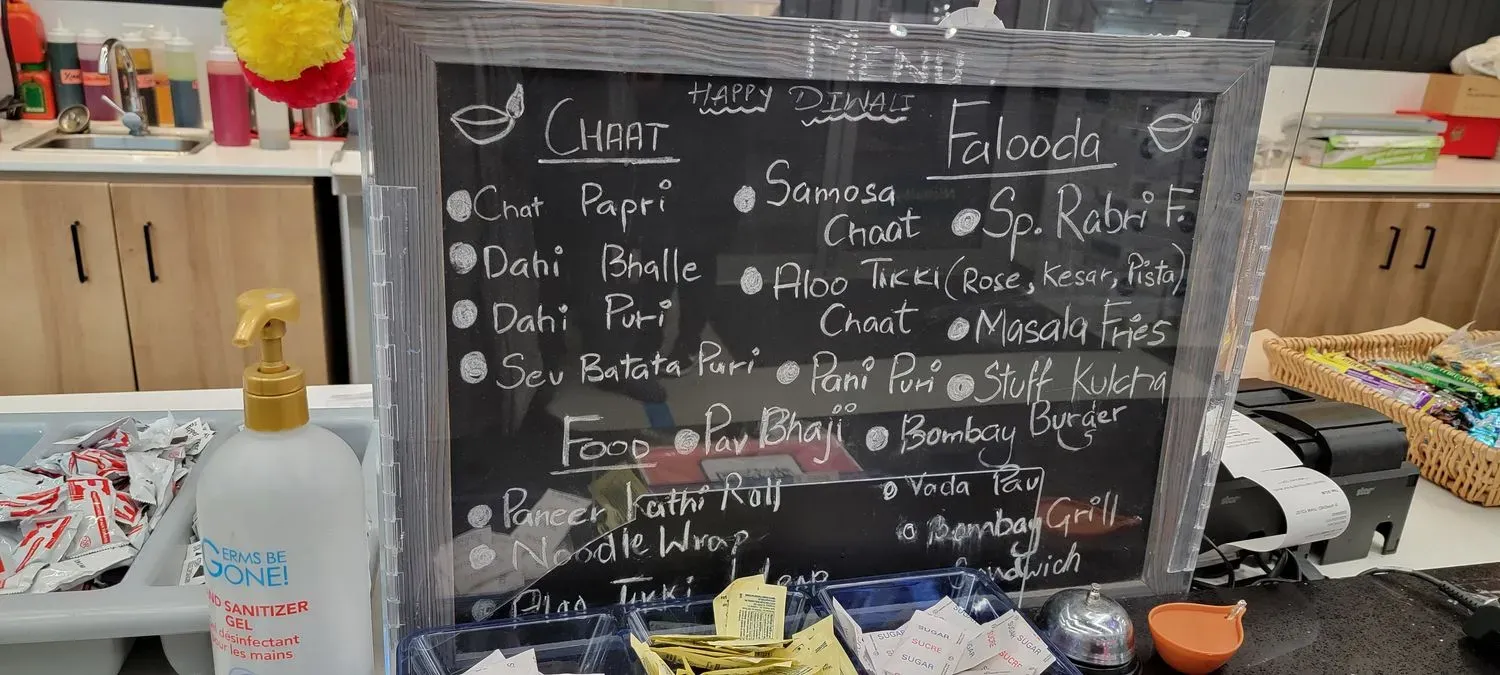 MENU
HAPPY DIWALI
CHAAT
Chat Papri
Dahi Bhalle
Dahi Puri
Sev Batata Puri
Samosa
Chaat
Aloo Tikki
Chaat
Pani Puri
Falooda
Sp. Rabri F.
(Rose, Kesar, Pista)
Masala Fries
Stuff Kulcha
FOOD
Pav Bhaji
Bombay Burger
Paneer Kathi Roll
Noodle Wrap
Aloo Tikki
Vada Pav
Bombay Grill
Sandwich
GERMS BE
GONE!
ND SANITIZER
GEL
désinfectant
our les mains
SUGAR
SUCRE
SUGAR
SUCRE
SUGAR
SUGAR
SUCRE
star
star